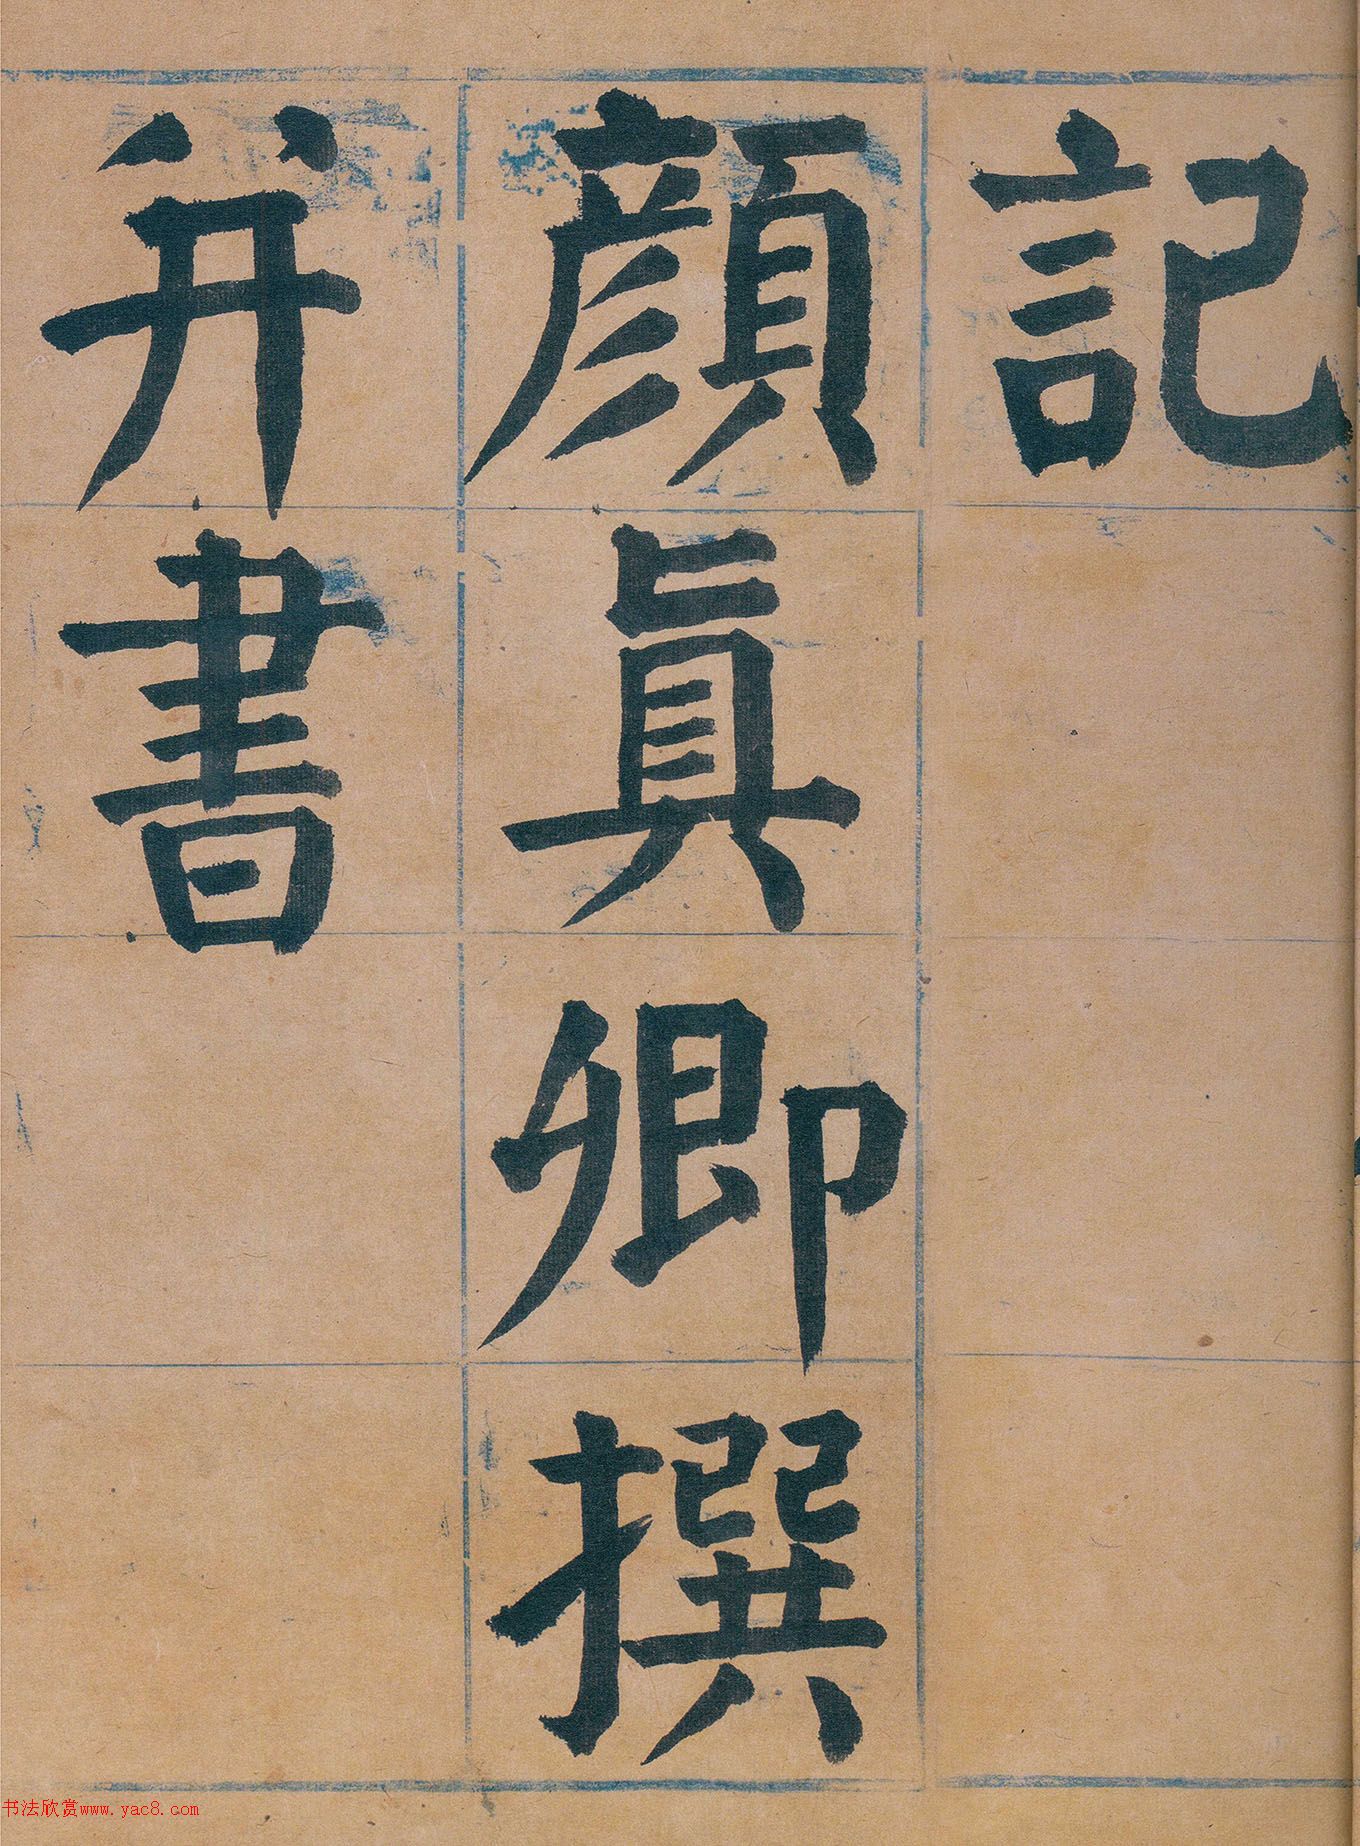 記
顏眞卿撰
并書
书法欣赏www.yac8.com